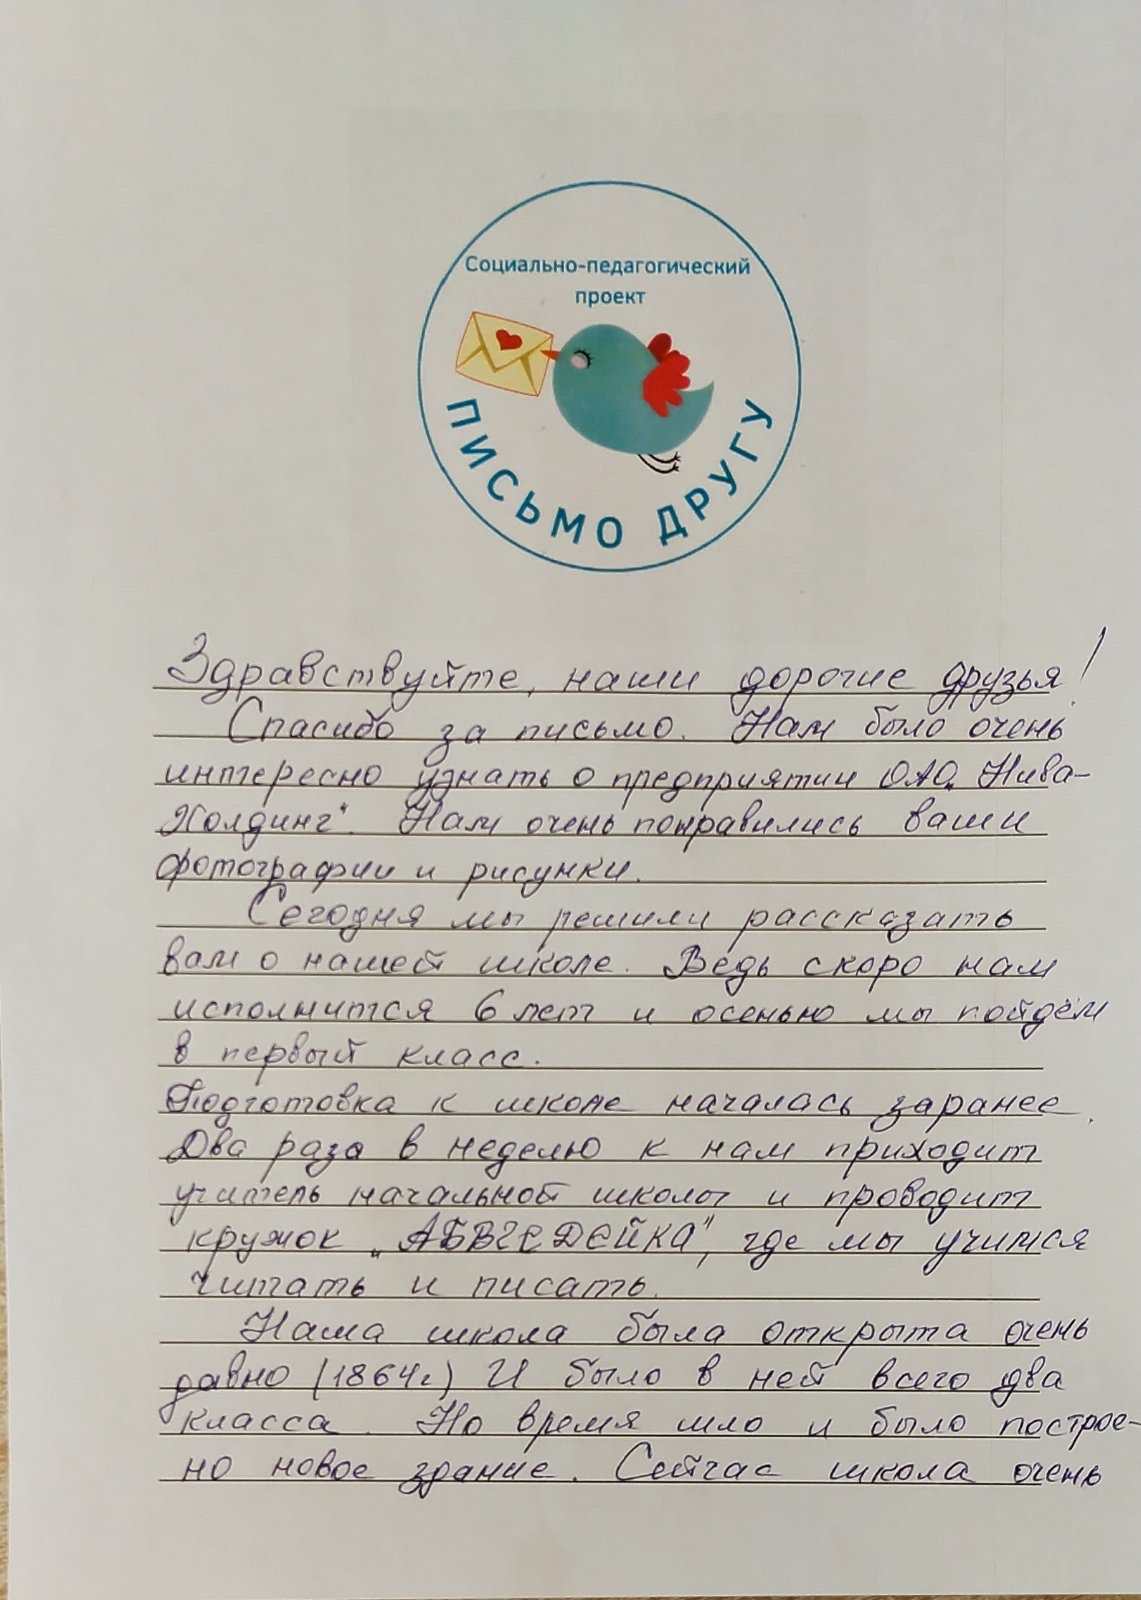 Социально-педагогический
проект
ПИСЬМО ДРУГУ
Здравствуйте, наши дорогие друзья!
Спасибо за письмо. Нам было очень
интересно узнать о предприятии ОАО „Нива-
Холдинг". Нам очень понравились ваши
фотографии и рисунки.
Сегодня мы решили рассказать
вам о нашей школе. Ведь скоро нам
исполнится 6 лет и осенью мы пойдём
в первый класс.
Подготовка к школе началась заранее.
Два раза в неделю к нам приходит
учитель начальной школы и проводит
кружок „АБВГЕДЕЙКА", где мы учимся
читать и писать.
Наша школа была открыта очень
давно (1864г.) И было в ней всего два
класса. Но время шло и было построе-
но новое здание. Сейчас школа очень